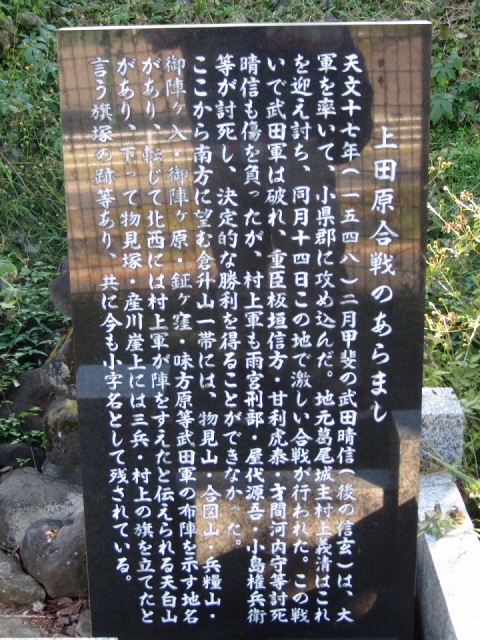 上田原合戦のあらまし
天文十七年(一五四八)二月甲斐の武田晴信(後の信玄)は、大
軍を率いて、小県郡に攻め込んだ。地元葛尾城主村上義清はこれ
を迎え討ち、同月十四日この地で激しい合戦が行われた。この戦
いで武田軍は破れ、重臣板垣信方・甘利虎泰・才間河内守等討死
晴信も傷を負ったが、村上軍も雨宮刑部・屋代源吾・小島権兵衛
等が討死し、決定的な勝利を得ることができなかった。
ここから南方に望む倉升山一帯には、物見山・合図山・兵糧山・
御陣ヶ入・御陣ヶ原・鉦ヶ窪・味方原等武田軍の布陣を示す地名
があり、転じて北西には村上軍が陣をすえたと伝えられる天白山
があり、下って物見塚・産川崖上には三兵・村上の旗を立てたと
言う旗塚の跡等あり、共に今も小字名として残されている。